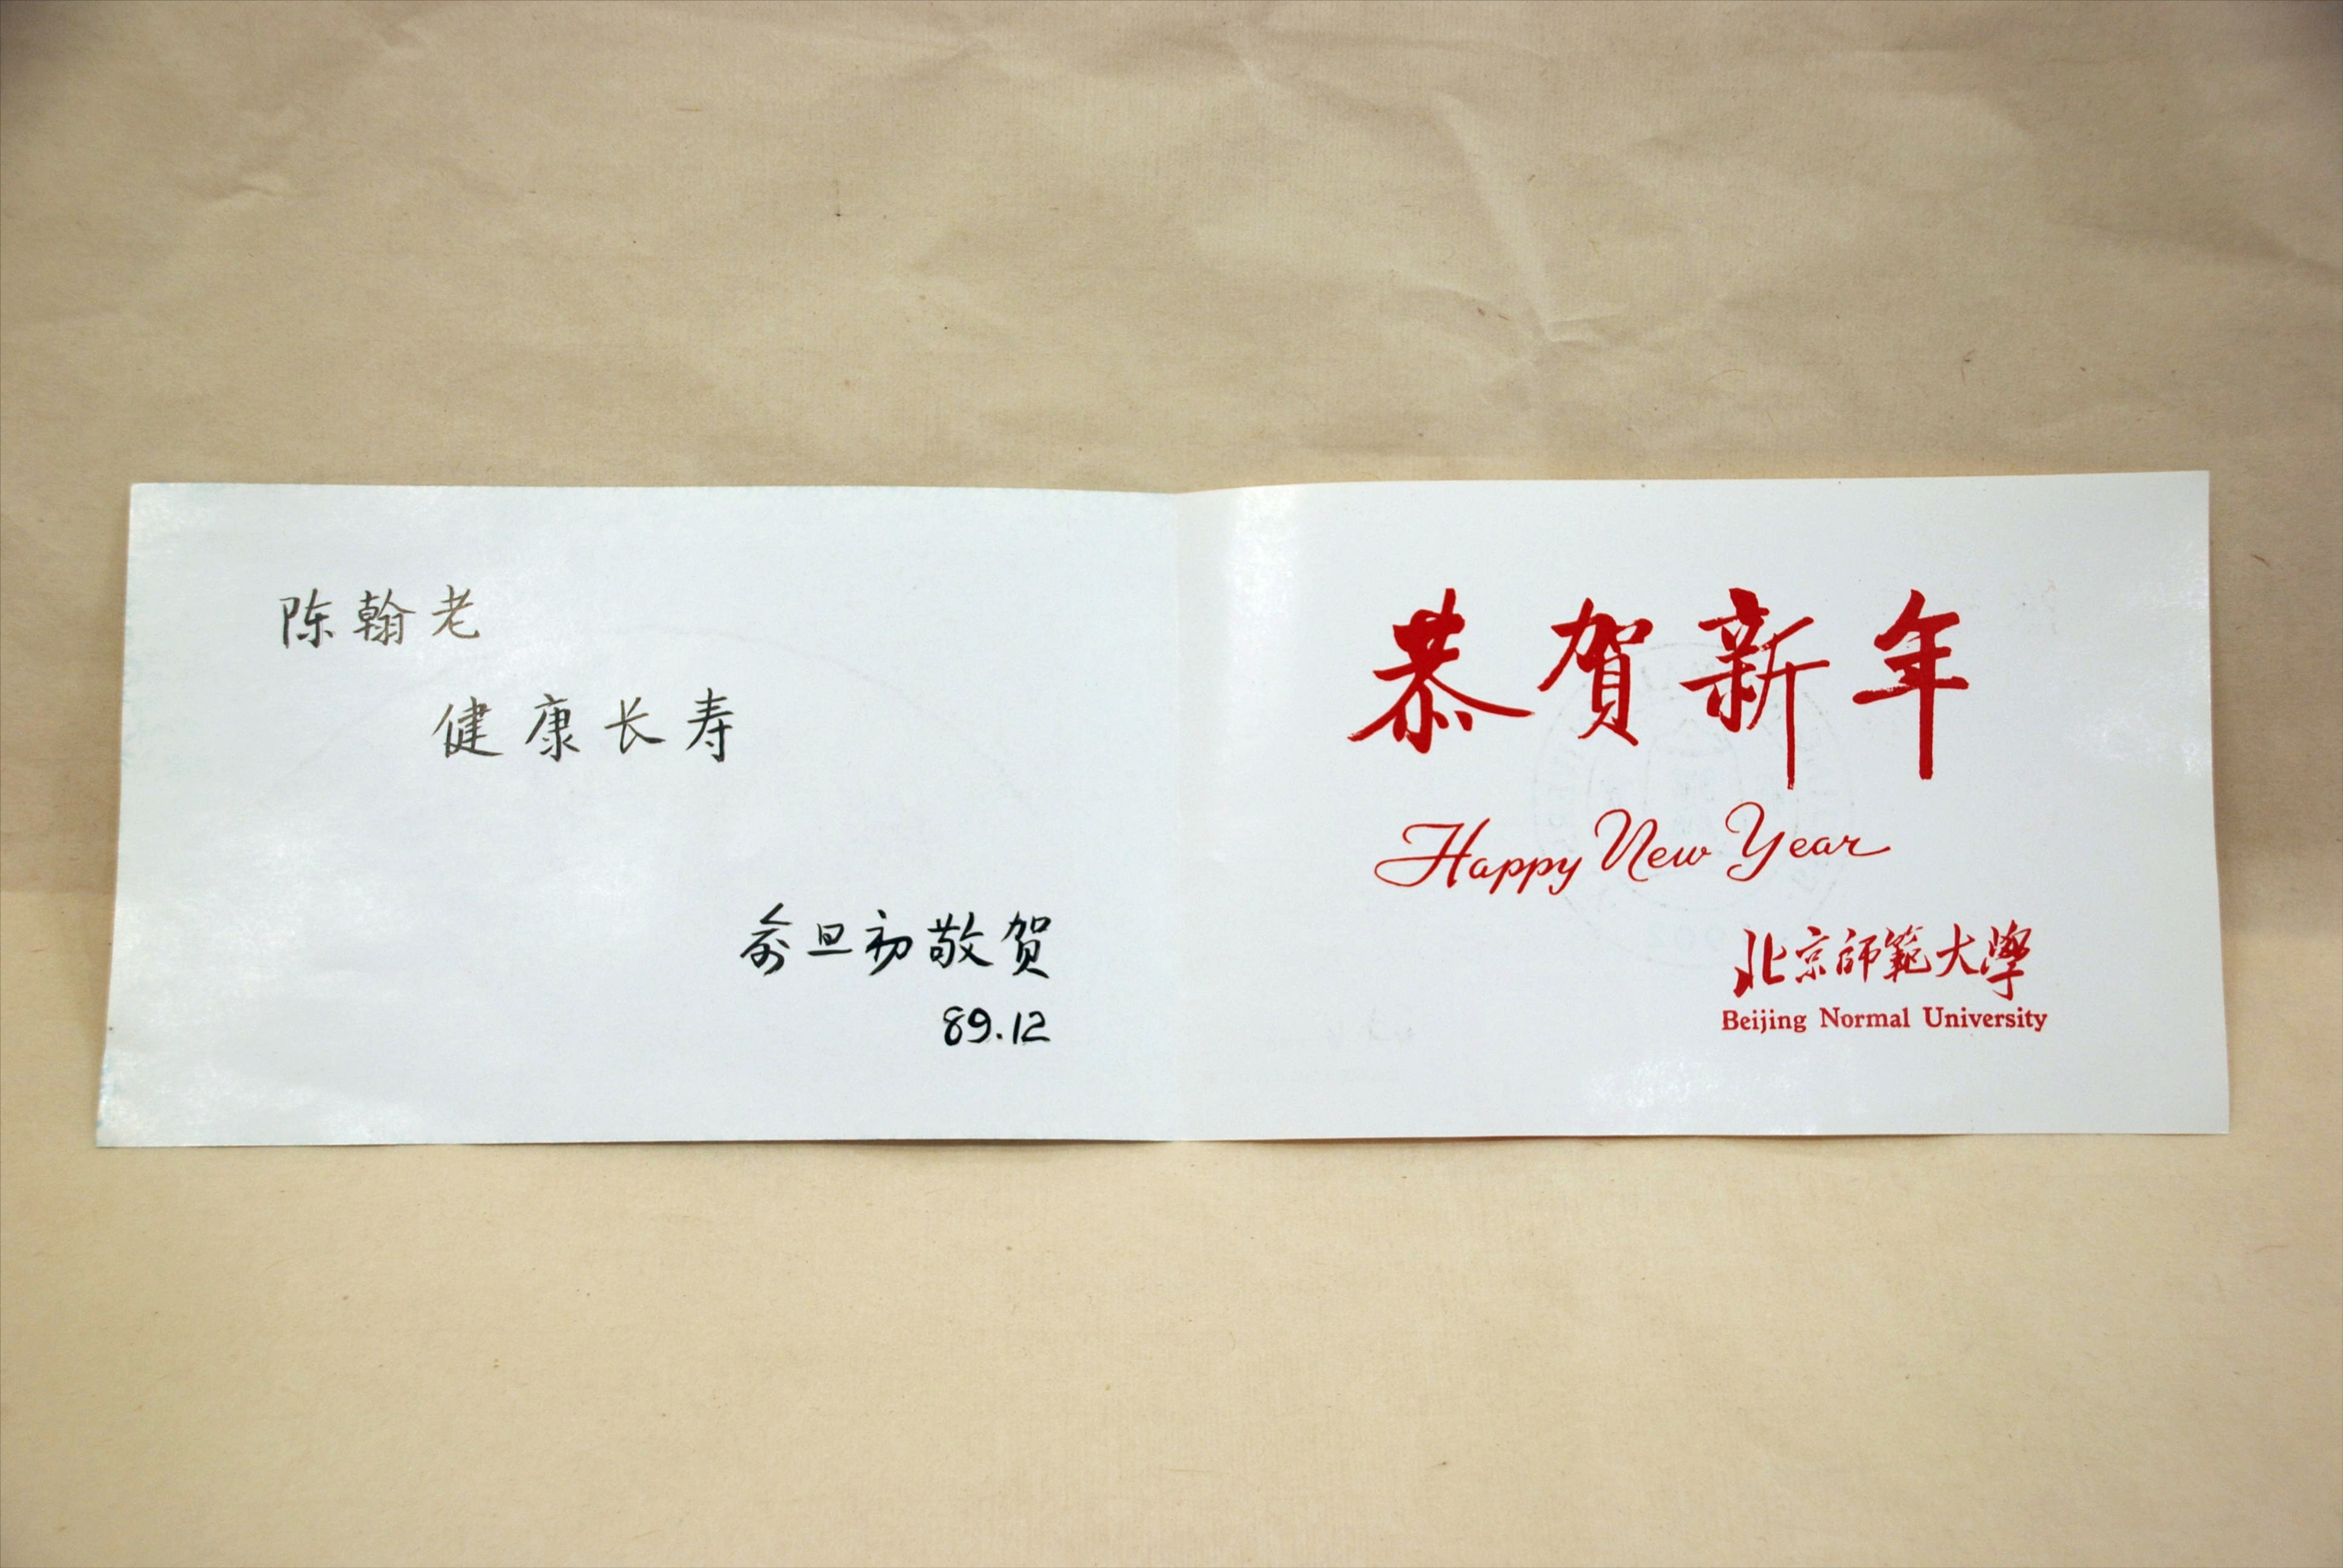 陈翰老
健康长寿
俞旦初敬贺
89.12
恭賀新年
Happy New Year
北京師範大學
Beijing Normal University